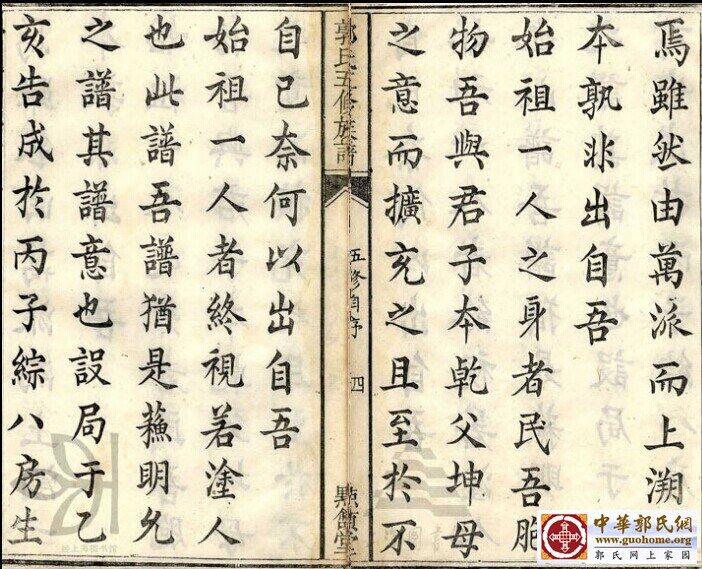 焉雖然由萬派而上溯
本孰非出自吾
始祖一人之身者民吾胞
物吾與君子本乾父坤母
之意而擴充之且至於不
郭氏五修族譜
五修自序
四
點頷堂
自已奈何以出自吾
始祖一人者終視若塗人
也此譜吾譜猶是蘓明允
之譜其譜意也設局于乙
亥告成於丙子綜八房生
中華郭氏網
www.guohome.org
郭氏网上家园